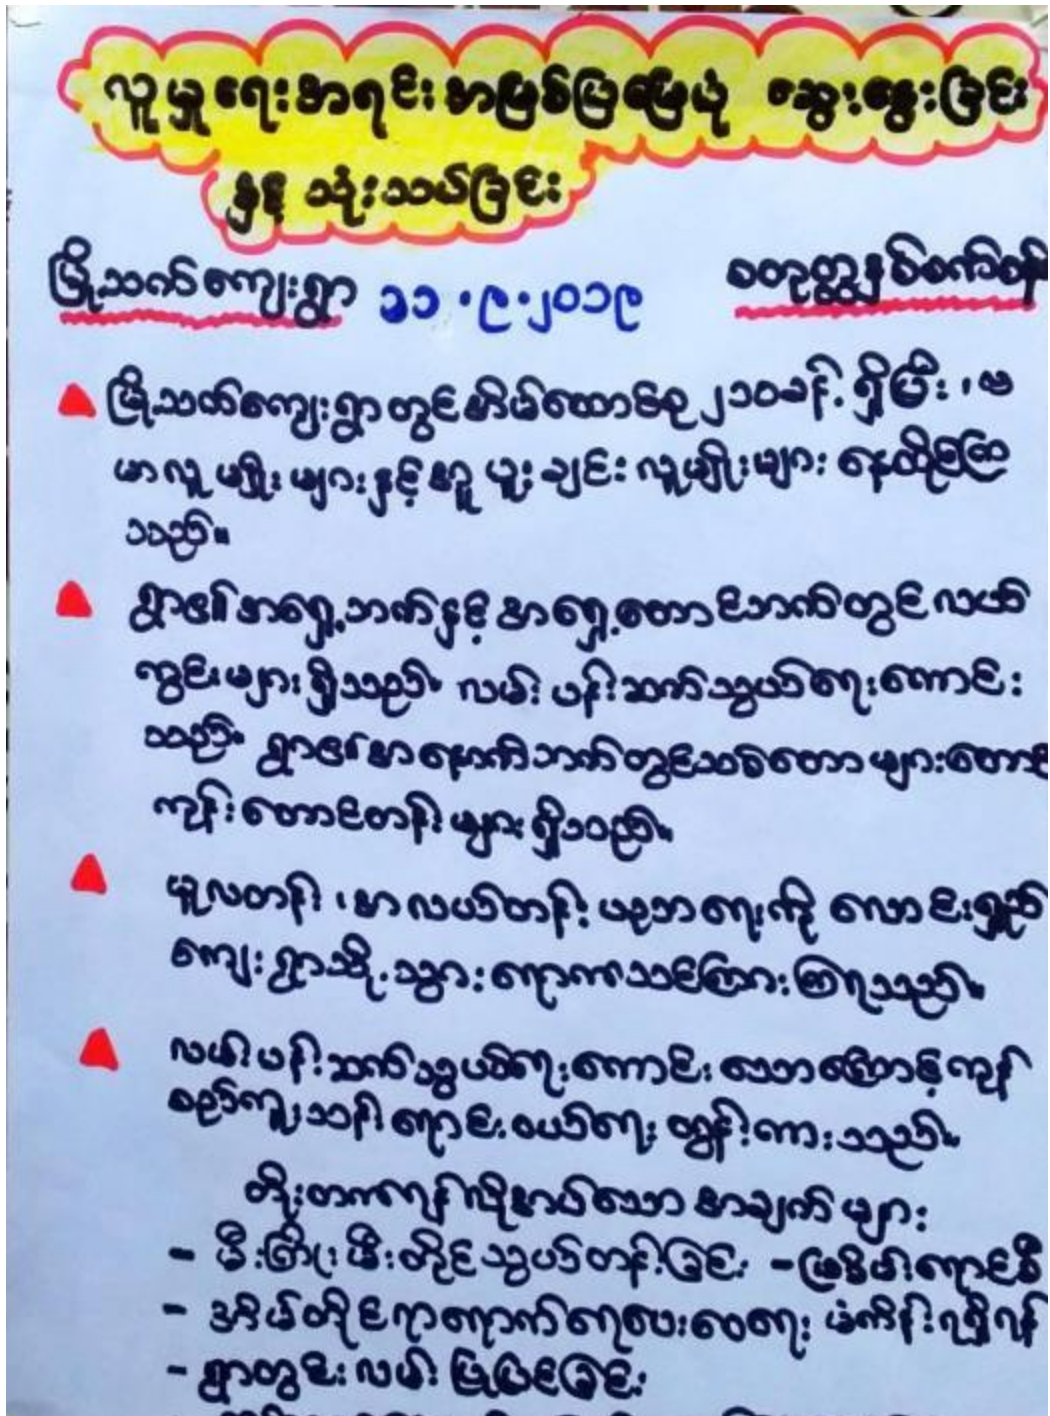 လူမှုရေးအရင်းအမြစ်ပြမြေပုံ ဆွေးနွေးခြင်း
နှင့် သုံးသပ်ခြင်း
မြို့သက်ကျေးရွာ ၁၁.၉.၂၀၁၉ စတုတ္ထနှစ်စက်စန်
မြို့သက်ကျေးရွာတွင်အိမ်ထောင်စု ၂၁၀ခန့် ရှိပြီး၊ ဗ
မာလူမျိုးများနှင့်အူပူးချင်းလူမျိုးများ နေထိုင်ကြ
သည်။
ရွာ၏အရှေ့ဘက်နှင့်အရှေ့တောင်ဘက်တွင် လယ်
ကွင်းများရှိသည်။ လမ်းပန်းဆက်သွယ်ရေးကောင်း
သည်။ ရွာ၏အနောက်ဘက်တွင်သစ်တောများတောင်
ကုန်းတောင်တန်းများရှိသည်။
မူလတန်း၊ အလယ်တန်းပညာရေးကို လောင်းရှည်
ကျေးရွာသို့သွားရောက်သင်ကြားကြရသည်။
လမ်းပန်းဆက်သွယ်ရေးကောင်းသောကြောင့်ကုန်
စည်ကူးသန်းရောင်းဝယ်ရေး တွန့်ကားသည်။
တိုးတက်ရန်လိုအပ်သောအချက်များ
- မီးကြိုးမီးတိုင်သွယ်တန်းခြင်း -မြစိမ်းရောင်စီ
- အိမ်တိုင်ရာရောက်ရေပေးဝေရေး မံကိန်းရရှိရန်
- ရွာတွင်းလမ်းပြုပြင်ခြင်း